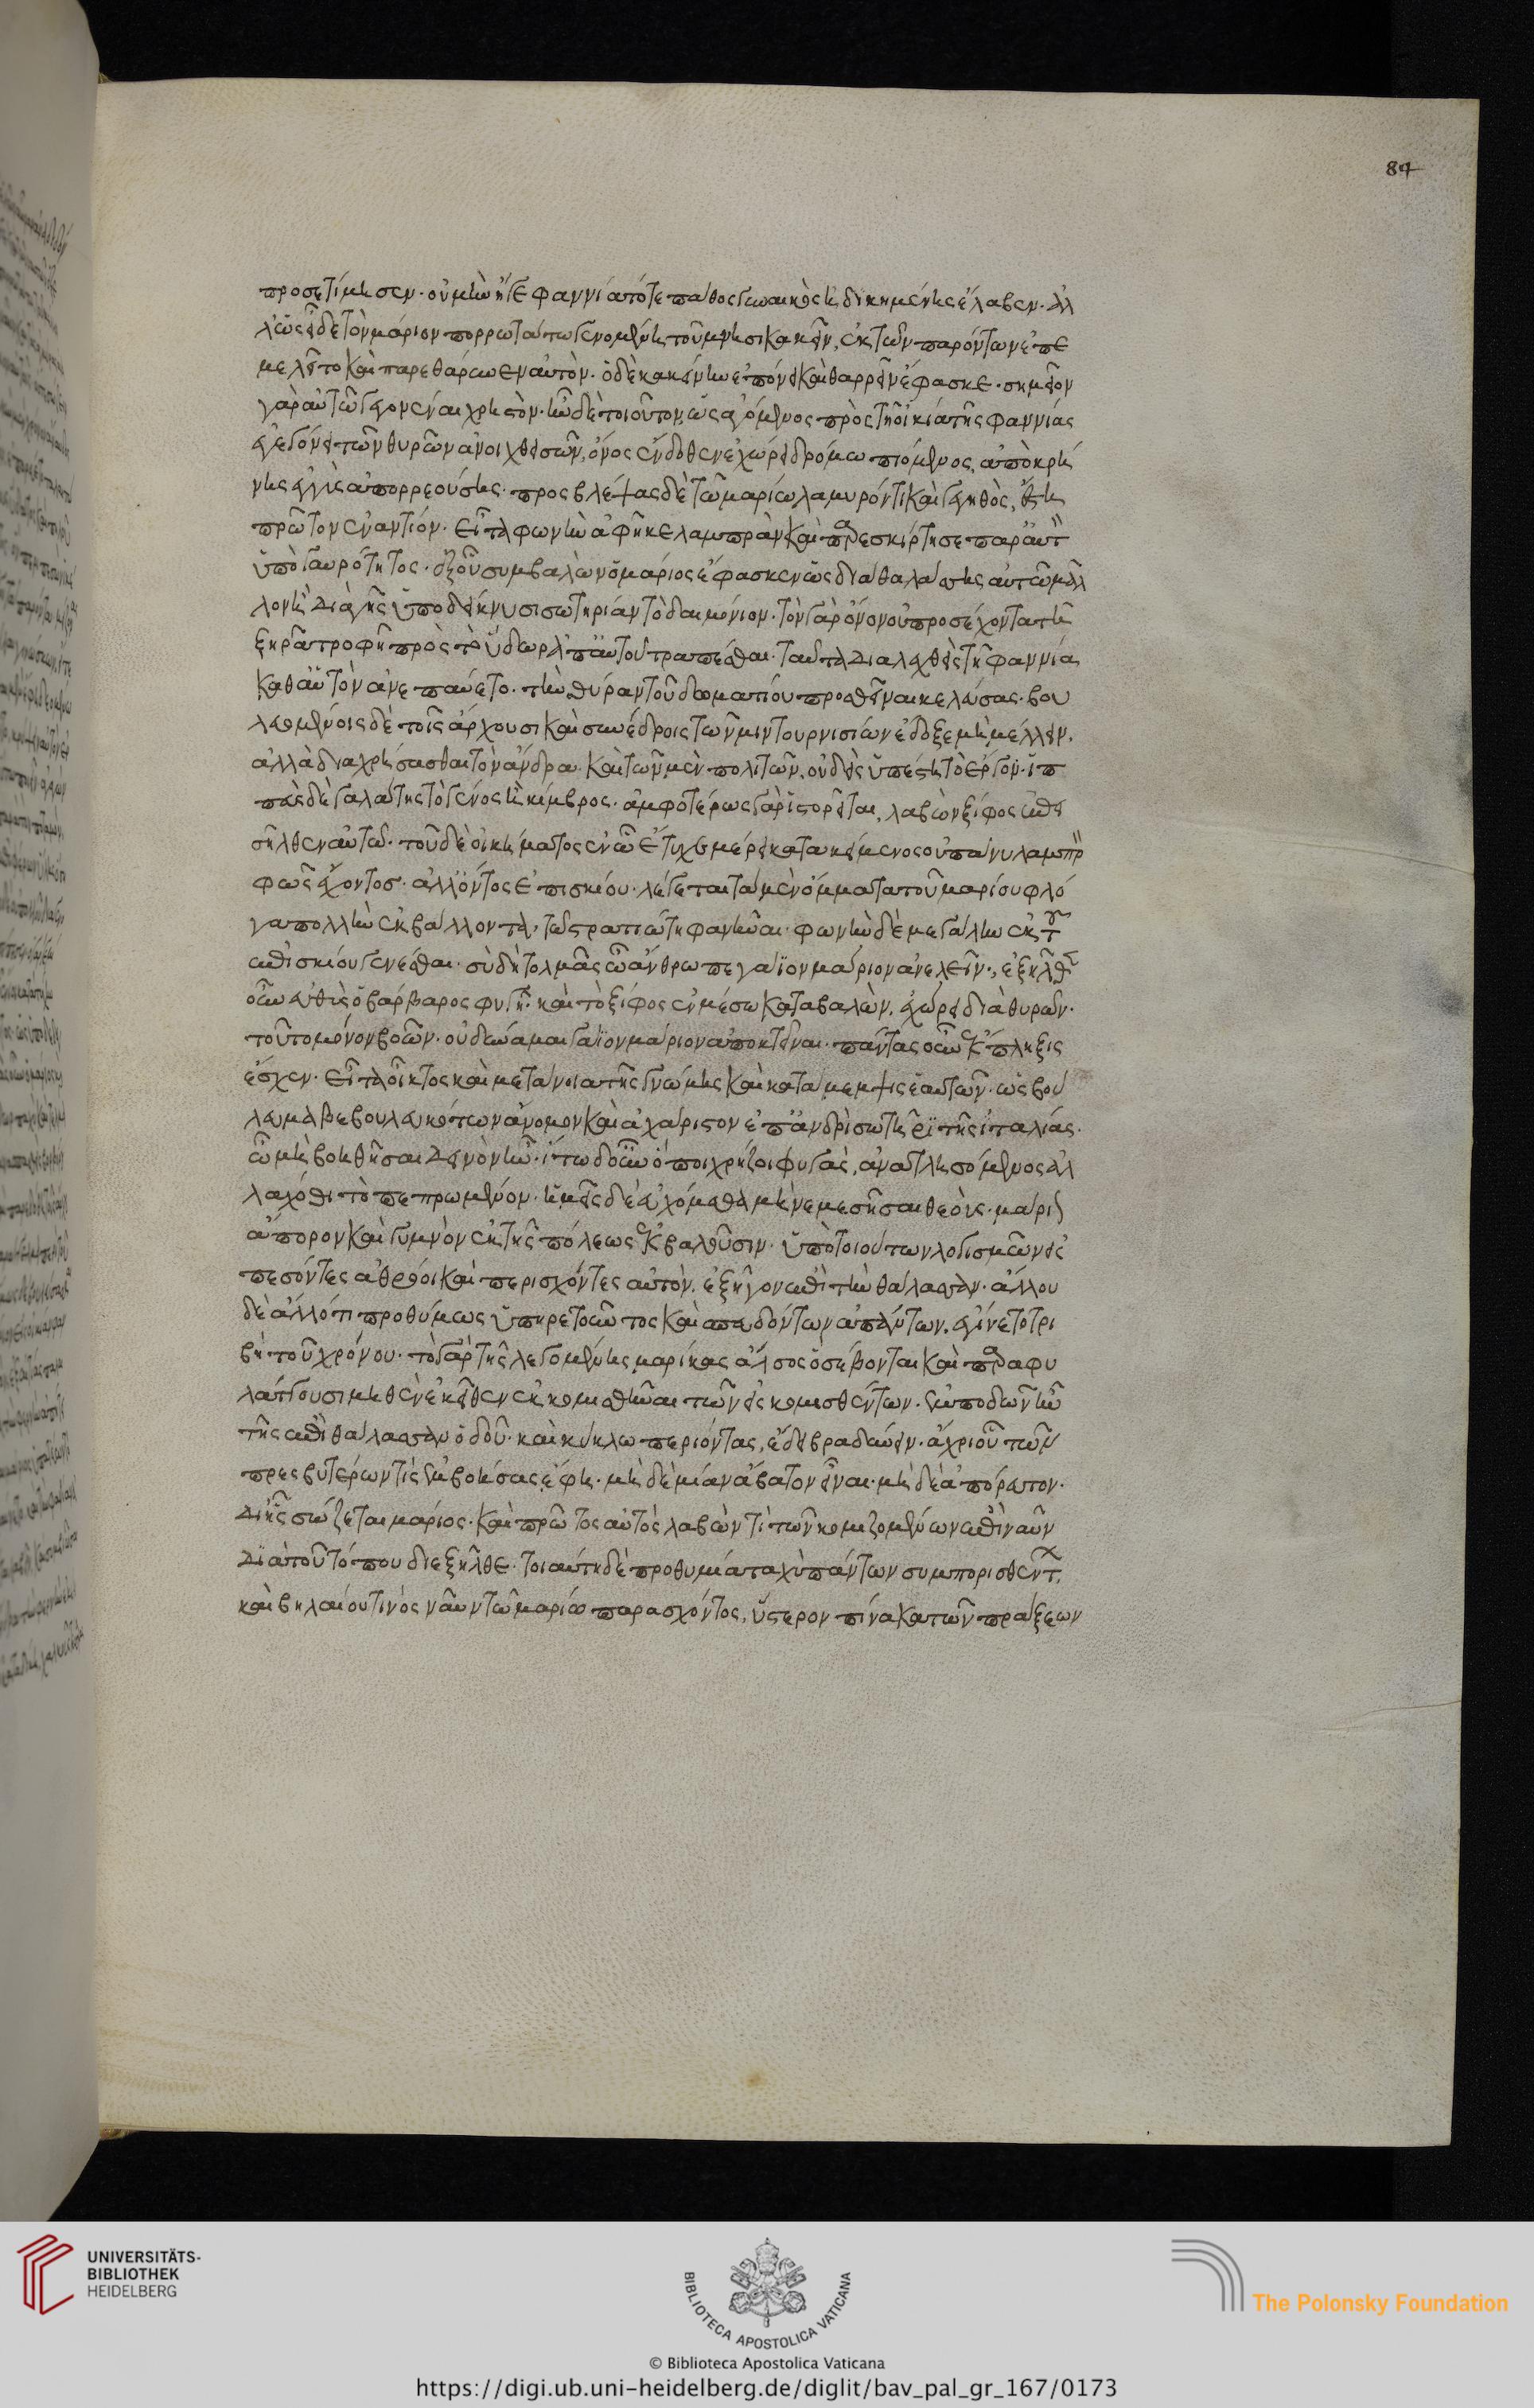 84
προσετίμησεν· οὐ μὴν ἥγε φαννία τότε πάθος γυναικὸς ἠδικημένης ἔλαβεν· ἀλ
λ᾽ ὡς εἶδε τὸν μάριον πορρωτάτω γενομένη τοῦ μνησικακεῖν, ἐκ τῶν παρόντων ἐπε
μελεῖτο καὶ παρεθάρσυνεν αὐτὸν· ὁ δὲ κακείνην ἐπήνει καὶ θαρρεῖν ἔφασκε· σημεῖον
γὰρ αὐτῶ γεγονέναι χρηστὸν· ἦν δὲ τοιοῦτον, ὡς ἀγόμενος πρὸς τῆ οἰκία τῆς φαννίας
ἐγεγόνει τῶν θυρῶν ἀνοιχθεισῶν, ὄνος ἔνδοθεν ἐχώρει δρόμω πιόμενος, ἀπὸ κρή
νης ἐγγὺς ἀπορρεούσης· προσβλέψας δὲ τῶ μαρίω λαμυρόν τι καὶ γεγηθὸς, ἔστη
πρῶτον ἐναντίον· εἶτα φωνὴν ἀφῆκε λαμπρὰν καὶ παρεσκίρτησε παρ᾽ αὐτὸν
ὑπὸ γαυρότητος· ἐξ οὗ συμβαλὼν ὁ μάριος ἔφασκεν ὡς διὰ θαλάττης αὐτῶ μᾶλ
λον ἢ διὰ γῆς ὑποδείκνυσι σωτηρίαν τὸ δαιμόνιον· τὸν γὰρ ὄνον οὐ προσέχοντα τῆ
ξηρᾶ τροφῆ πρὸς τὸ ὕδωρ ἀπ᾽ αὐτοῦ τραπέσθαι· ταῦτα διαλεχθεὶς τῆ φαννία
καθ᾽ αὑτὸν ἀνεπαύετο· τὴν θύραν τοῦ δωματίου προσθεῖναι κελεύσας· βου
λευομένοις δὲ τοῖς ἄρχουσι καὶ συνέδροις τῶν μιντουρνισίων ἔδοξε μὴ μέλλειν,
ἀλλὰ διαχρήσασθαι τὸν ἄνδρα· καὶ τῶν μὲν πολιτῶν, οὐδεὶς ὑπέστη τὸ ἔργον· ἱπ
πεὺς δὲ γαλάτης τὸ γένος ἢ κίμβρος· ἀμφοτέρως γὰρ ἱστορεῖται, λαβὼν ξίφος ἐπει
σῆλθεν αὐτῶ· τοῦ δὲ οἰκήματος ἐν ὧ ἔτυχε μέρει κατακείμενος οὐ πάνυ λαμπρὸν
φῶς ἔχοντοσ· ἀλλ᾽ ὄντος ἐπισκίου· λέγεται τὰ μὲν ὄμματα τοῦ μαρίου φλό
γα πολλὴν ἐκβάλλοντα, τῶ στρατιώτη φανῆναι· φωνὴν δὲ μεγάλην ἐκ τοῦ
ἐπισκίου γενέσθαι· σὺ δὴ τολμᾶς ὦ ἄνθρωπε γάϊον μάριον ἀνελεῖν·, ἐξῆλθεν
οὖν εὐθὺς ὁ βάρβαρος φυγῆ· καὶ τὸ ξίφος ἐν μέσω καταβαλὼν, ἐχώρει διὰ θυρῶν·
τοῦτο μόνον βοῶν· οὐ δύναμαι γάϊον μάριον ἀποκτεῖναι· πάντας οὖν ἔκπληξις
ἔσχεν· εἶτα οἶκτος καὶ μετάνοια τῆς γνώμης καὶ κατάμεμψις ἑαυτῶν· ὡς βού
λευμα βεβουλευκότων ἄνομον καὶ ἀχάριστον ἐπ᾽ ἀνδρὶ σωτῆρι τῆς ἰταλίας·
ὧ μὴ βοηθῆσαι δεινὸν ἦν· ἴτω δ᾽ οὖν ὅποι χρήζοι φυγὰς, ἀνατλησόμενος ἀλ
λαχόθι τὸ πεπρωμένον· ἡμεῖς δὲ εὐχόμεθα μὴ νεμεσῆσαι θεοὺς· μάριον
ἄπορον καὶ γυμνὸν ἐκ τῆς πόλεως ἐκβαλοῦσιν· ὑπὸ τοιούτων λογισμῶν εἰς
πεσόντες ἀθρόοι καὶ περισχόντες αὐτὸν, ἐξῆγον ἐπὶ τὴν θάλασσαν· ἄλλου
δὲ ἄλλό τι προθύμως ὑπηρετοῦντος καὶ σπευδόντων ἁπάντων, ἐγίνετο τρι
βὴ τοῦ χρόνου· τὸ γὰρ τῆς λεγομένης μαρίκας ἄλσος ὃ σέβονται καὶ παραφυ
λάττουσι μηθὲν ἐκεῖθεν ἐκκομισθῆναι τῶν εἰσκομισθέντων· ἐμποδὼν ἦν
τῆς ἐπὶ θάλασσαν ὁδοῦ· καὶ κύκλω περιόντας, ἔδει βραδύνειν· ἄχρι οὗ τῶν
πρεσβυτέρων τὶς ἐμβοήσας ἔφη· μὴ δὲ μίαν ἄβατον εἶναι· μὴ δὲ ἀπόρατον·
δι᾽ ἧς σώζεται μάριος· καὶ πρῶτος αὐτὸς λαβὼν τὶ τῶν κομιζομένων ἐπὶ ναῦν
διὰ τοῦ τόπου διεξῆλθε· τοιαύτη δὲ προθυμία ταχὺ πάντων συμπορισθέντων,
καὶ βηλαίου τινὸς ναῦν τῶ μαρίω παρασχόντος, ὕστερον πίνακα τῶν πράξεων
UNIVERSITÄTS-
BIBLIOTHEK
HEIDELBERG
BIBLIOTECA APOSTOLICA VATICANA
The Polonsky Foundation
© Biblioteca Apostolica Vaticana
https://digi.ub.uni-heidelberg.de/diglit/bav_pal_gr_167/0173